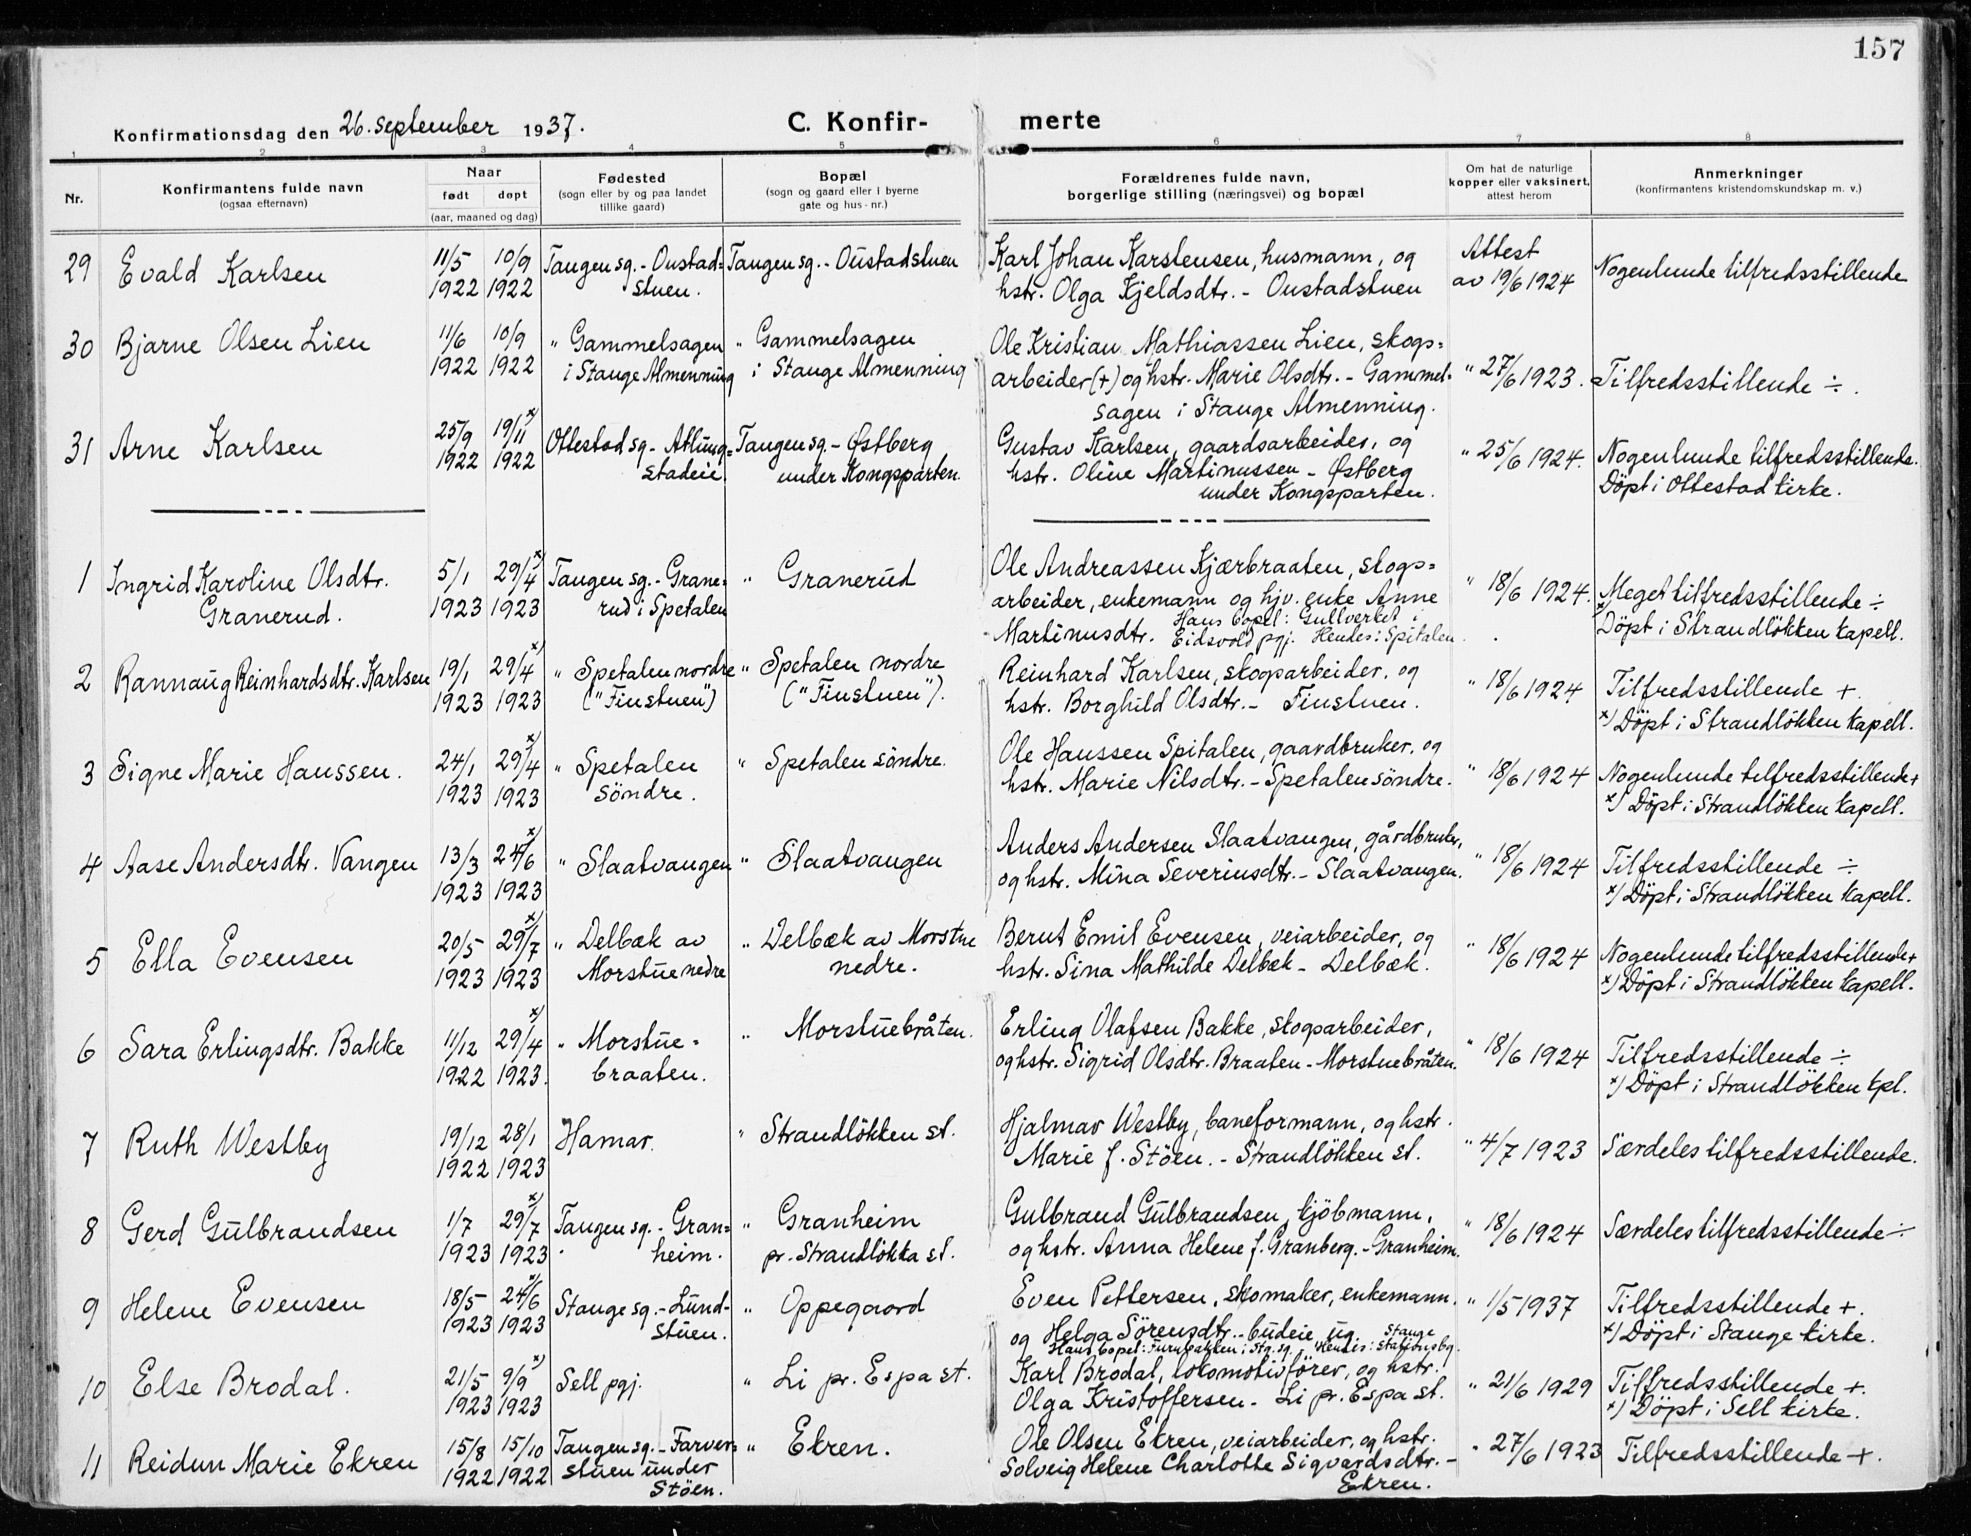 157
Konfirmationsdag den 26. september 1937.
C. Konfirmerte
1 2 3 4 5 6 7 8
Nr.
Konfirmantens fulde navn
(ogsaa efternavn)
Naar
født døpt
(aar, maaned og dag)
Fødested
(sogn eller by og paa landet
tillike gaard)
Bopæl
(sogn og gaard eller i byerne
gate og hus-nr.)
Forældrenes fulde navn,
borgerlige stilling (næringsvei) og bopæl
Om hat de naturlige
kopper eller vaksinert,
attest herom
Anmerkninger
(konfirmantens kristendomskundskap m. v.)
29 Evald Karlsen 11/5 10/9 Tangen sg. - Oustad= Tangen sg. - Oustadstuen Karl Johan Karstensen, husmann, og Attest Nogenlunde tilfredsstillende
1922 1922 stuen. hstr. Olga Kjeldsdtr. - Oustadstuen av 19/6 1924
30 Bjarne Olsen Lien 11/6 10/9 " Gammelsagen " Gammelsagen Ole Kristian Mathiassen Lien, skogs=
1922 1922 i Stange Almenning i Stange Almenning arbeider (+) og hstr. Marie Olsdtr. - Gammel- " 27/6 1923. Tilfredsstillende ÷.
sagen i Stange Almenning.
31 Arne Karlsen 25/9 19/11 x) Ottestad sg. - Atlung= Tangen sg. - Østberg Gustav Karlsen, gaardsarbeider, og " 25/6 1924. Nogenlunde tilfredsstillende.
1922 1922 stadeie. under Kongsparten. hstr. Oline Martinussen - Østberg Döpt i Ottestad kirke.
under Kongsparten.
1 Ingrid Karoline Olsdtr. 5/1 29/4 x) Tangen sg. - Grane= " Granerud Ole Andreassen Kjærbraaten, skogs= " 18/6 1924. Meget tilfredsstillende ÷
Granerud. 1923 1923 rud i Spetalen arbeider, enkemann og hjv. enke Anne x) Döpt i Strandlökken kapell.
Martinusdtr. Hans bopel: Gullverket i
Eidsvold pgj. Hendes: Spitalen.
2 Rannaug Reinhardsdtr. Karlsen 19/1 29/4 x) " Spetalen nordre " Spetalen nordre Reinhard Karlsen, skogsarbeider, og " 18/6 1924 Tilfredsstillende +.
1923 1923 ("Finstuen") ("Finstuen"). hstr. Borghild Olsdtr. - Finstuen. x) Döpt i Strandlökken kapell.
3 Signe Marie Hanssen. 24/1 29/4 x) " Spetalen " Spetalen söndre. Ole Hanssen Spitalen, gaardbruker, og " 18/6 1924 Nogenlunde tilfredsstillende +
1923 1923 söndre. hstr. Marie Nilsdtr. - Spetalen söndre. x) Döpt i Strandlökken kapell.
4 Aase Andersdtr. Vangen 13/3 24/6 x) " Slaatvangen " Slaatvangen Anders Andersen Slaatvangen, gårdbruker, " 18/6 1924 Tilfredsstillende ÷
1923 1923 og hstr. Mina Severinsdtr. - Slaatvangen. x) Döpt i Strandlökken kapell.
5 Ella Evensen 20/5 29/7 x) " Delbæk av " Delbæk av Morstue Bernt Emil Evensen, veiarbeider, og " 18/6 1924 Nogenlunde tilfredsstillende +
1923 1923 Morstue nedre nedre. hstr. Sina Mathilde Delbæk - Delbæk. x) Döpt i Strandlökken kapell.
6 Sara Erlingsdtr. Bakke 11/12 29/4 x) " Morstue= " Morstuebråten. Erling Olafsen Bakke, skogsarbeider, " 18/6 1924 Tilfredsstillende ÷
1922 1923. braaten. og hstr. Sigrid Olsdtr. Braaten - Morstuebråten. x) Döpt i Strandlökken kpl.
7 Ruth Westby 19/12 28/1 Hamar. " Strandlökken st. Hjalmar Westby, baneformann, og hstr. " 4/7 1923 Særdeles tilfredsstillende.
1922 1923 Marie f. Stöen. - Strandlökken st.
8 Gerd Gulbrandsen 1/7 29/7 x) Tangen sg. - Gran= " Granheim Gulbrand Gulbrandsen, kjöbmann, " 18/6 1924 Særdeles tilfredsstillende ÷
1923 1923 heim. pr. Strandlökka st. og hstr. Anna Helene f. Granberg. - Granheim.
9 Helene Evensen 18/5 24/6 x) Stange sg. - Lund- " Oppegaard Even Pettersen, skomaker, enkemann, " 1/5 1937 Tilfredsstillende +.
1923 1923 stuen. og Helga Sörensdtr. - budeie, ug. x) Döpt i Stange kirke.
Hans bopel: Furubakken i Stg. sg. Hendes: Stange Stationsby.
10 Else Brodal. 21/5 9/9 x) Sell pgj. " Li pr. Espa st. Karl Brodal, lokomotivförer, og hstr. " 21/6 1929 Tilfredsstillende +.
1923 1923 Olga Kristoffersen - Li pr. Espa st. x) Döpt i Sell kirke.
11 Reidun Marie Ekren 15/8 15/10 Tangen sg. - Farver= " Ekren. Ole Olsen Ekren, veiarbeider, og hstr. " 27/6 1923 Tilfredsstillende +.
1922 1922 stuen under Solveig Helene Charlotte Sigvardsdtr. -
Stöen. Ekren.